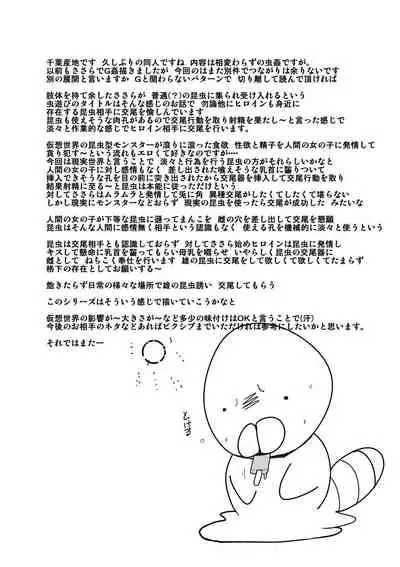 千葉産地です　久しぶりの同人ですね　内容は相変わらずの虫姦ですが。
以前もささらでG姦描きましたが　今回のはまた別件でつながりは余りないです
別の展開と言いますか　Gと関わらないパターンで　切り離して読んで頂ければ

肢体を持て余したささらが　普通(？)の昆虫に集られ受け入れるという
虫遊びのタイトルはそんな感じのお話で　勿論他ヒロインも身近に
存在する昆虫相手に交尾を愉しんでいます
昆虫も使えそうな肉孔があるので交尾行動を取り射精を果たし～と言った感じで
淡々と作業的な感じでヒロイン相手に交尾を行います。

仮想世界の昆虫型モンスターが滾りに滾った食欲　性欲と精子を人間の女の子に発情して
貪り犯す～という流れもエロくて好きなのですが…
今回は現実世界と言うことで　淡々と行為を行う昆虫の方がそれらしいかなと
人間の女の子に対し感情もなく　差し出された喰えそうな乳首に齧りついて
挿入できそうな孔を目の前に突き出されたから交尾器を挿入して交尾行動を取り
結果射精に至る～と昆虫は本能に従っただけという
対してささらはムラムラと発情して兎に角　異種交尾がしたくてしたくて堪らない
しかし現実にモンスターなどおらず　現実の昆虫を使ったら交尾が成功した　みたいな

人間の女の子が下等な昆虫に遜ってまんこを　雌の穴を差し出して交尾を懇願
昆虫はそんな人間に感情無く相手という認識もなく　使える孔を機械的に淡々と使うという

昆虫は交尾相手とも認識しておらず　対してささら始めヒロインは昆虫に発情し
キスして懸命に乳首を齧ってもらい母乳を啜らせ　いやらしく昆虫の交尾器に
雌として　ねちこく奉仕を行います　雄の昆虫に交尾をして欲しくて欲しくてたまらず
格下の存在としてお願いする～

飽きたらず日常の様々な場所で雄の昆虫誘い　交尾してもらう

このシリーズはそういう感じで描いていこうかなと

仮想世界の影響が～大きさが～など多少の味付けはOKと言うことで(汗)
今後のお相手のネタなどあればピクシブまでいただければ参考にしたいかと思います。

それではまたー